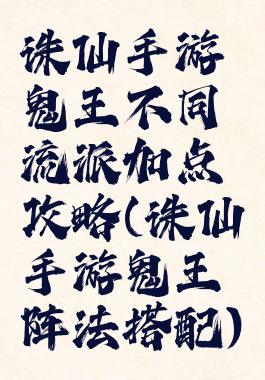 诛仙手游
鬼王不同
流派加点
攻略(诛仙
手游鬼王
阵法搭配)